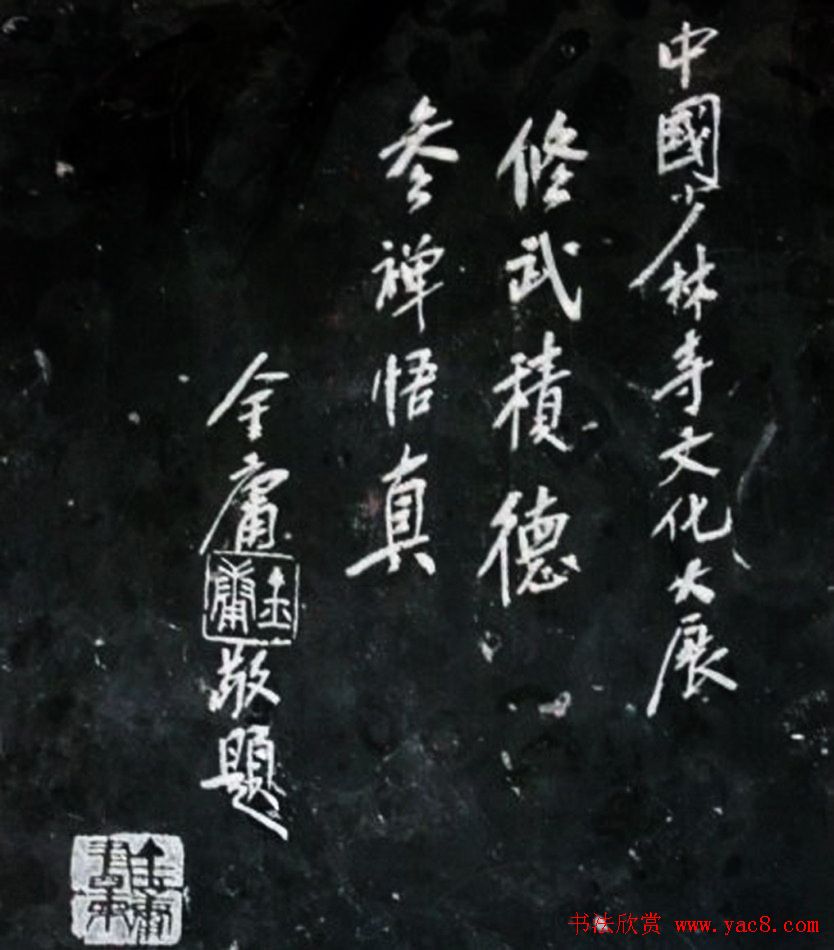 中國少林寺文化大展
修武積德
参禅悟真
金庸敬題
金庸
书法欣赏 www.yac8.com